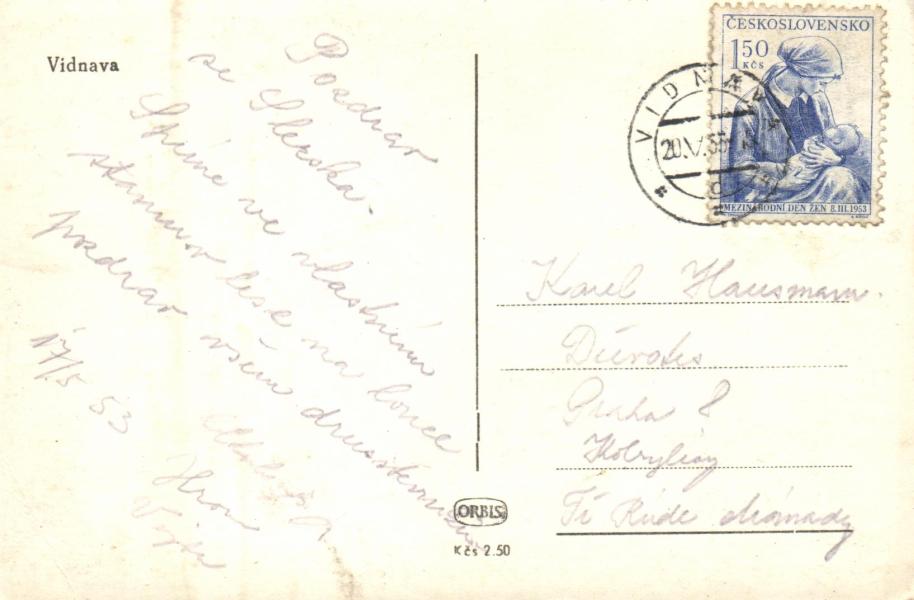 Vidnava
Pozdrav
ze Slezska.
Spíme ve vlastním
stanu v lese na louce
pozdrav všem
17/5 53
Hron
ČESKOSLOVENSKO
1,50
KČS
MEZINÁRODNÍ DEN ŽEN 8.III.1953
VIDNAVA
20.V.53
Karel Hausmann.
Praha 8
Kobylisy
Tř Rudé
ORBIS
Kčs 2.50